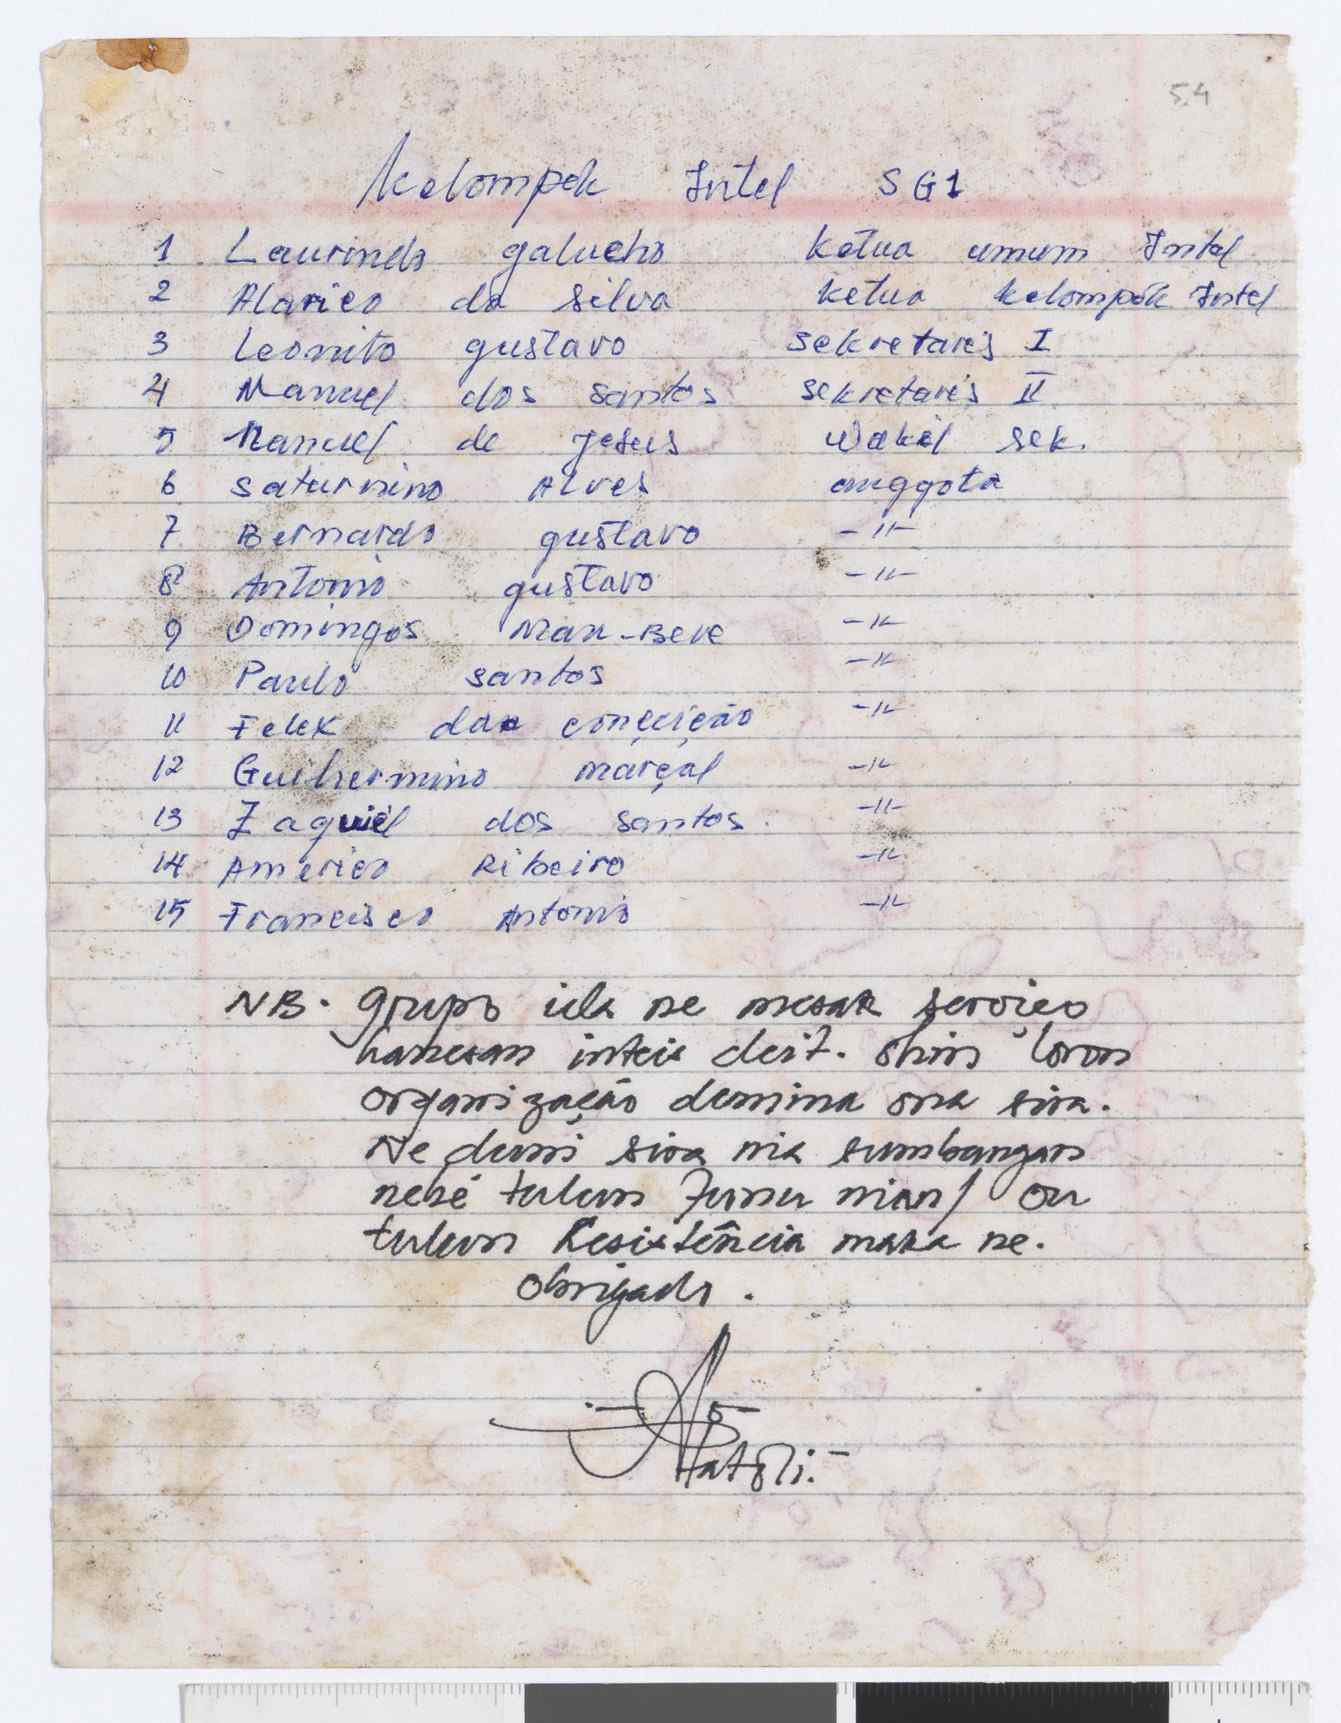 54
Kelompok Intel SG1
1 Laurindo galucho Ketua umum Intel
2 Alarico da silva Ketua kelompok Intel
3 Leonito gustavo Sekretaris I
4 Manuel dos santos sekretaris II
5 Manuel de Jesus Wakil sek.
6 Saturnino Alves anggota
7 Bernardo gustavo -"-
8 Antonio gustavo -"-
9 Domingos Mau-Bere -"-
10 Paulo santos -"-
11 Felex da conçeição -"-
12 Guilhermino marçal -"-
13 Zaquiel dos santos. -"-
14 Americo Ribeiro -"-
15 Francisco Antonio -"-
NB. grupo ida ne mesak serviço
hanesan inteir deit. ohin loron
organização domina ona sira.
Ne duni sira nia sumbangan
nebé tulun Funu nian/ ou
tulun Resistência maka ne.
Obrigado.
Hatoli.-